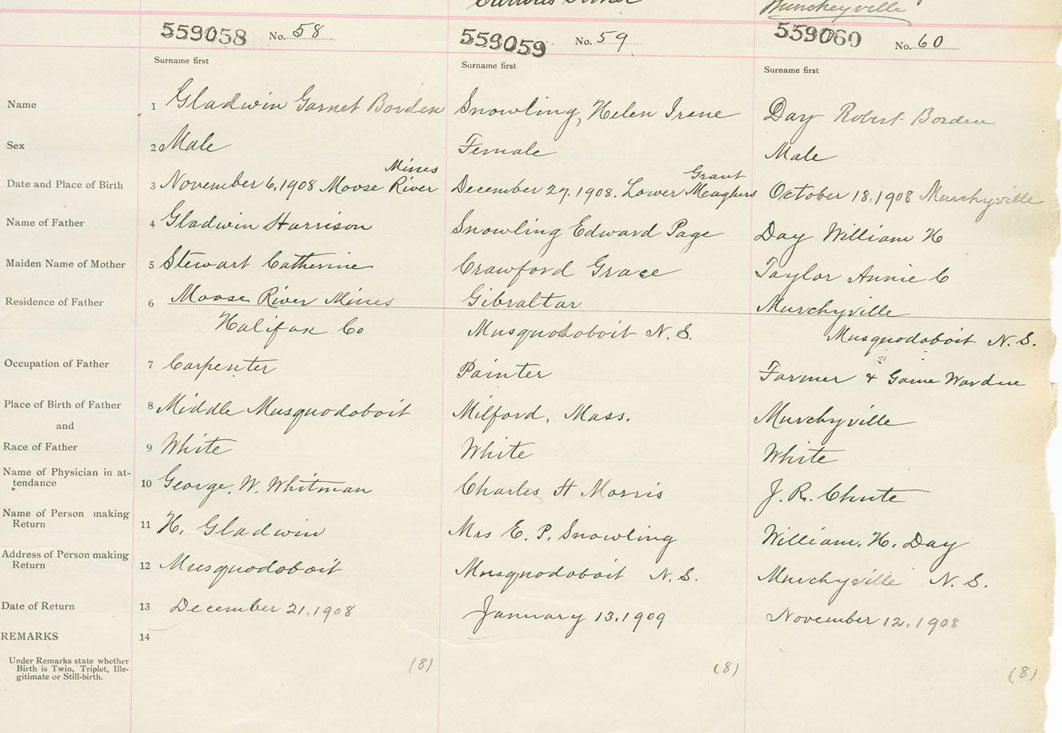 Murcheyville
559058 No. 58 559059 No. 59 559060 No. 60
Surname first Surname first Surname first
Name 1 Gladwin Garnet Borden Snowling, Helen Irene Day Robert Borden
Sex 2 Male Female Male
Mines Grant
Date and Place of Birth 3 November 6, 1908 Moose River December 27, 1908. Lower Meaghers October 18, 1908 Murchyville
Name of Father 4 Gladwin Harrison Snowling Edward Page Day William H
Maiden Name of Mother 5 Stewart Catherine Crawford Grace Taylor Annie C
Residence of Father 6 Moose River Mines Gibraltar Murchyville
Halifax Co Musquodoboit N.S. Musquodoboit N.S.
Occupation of Father 7 Carpenter Painter Farmer & Game Warden
Place of Birth of Father 8 Middle Musquodoboit Milford, Mass. Murchyville
and
Race of Father 9 White White White
Name of Physician in at-
tendance 10 George. W. Whitman Charles H Morris J. R. Chute
Name of Person making
Return 11 H. Gladwin Mrs E. P. Snowling William. H. Day
Address of Person making
Return 12 Musquodoboit Musquodoboit N.S. Murchyville N.S.
Date of Return 13 December 21, 1908 January 13, 1909 November 12, 1908
REMARKS 14
Under Remarks state whether
Birth is Twin, Triplet, Ille-
gitimate or Still-birth.
(8) (8) (8)